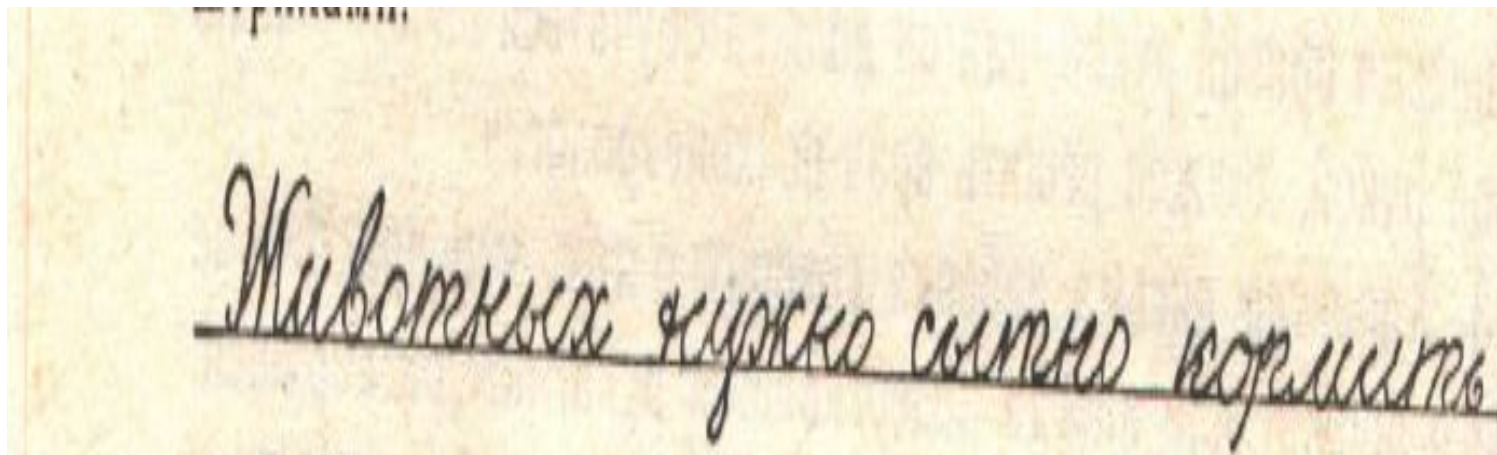 Животных нужно сытно кормить